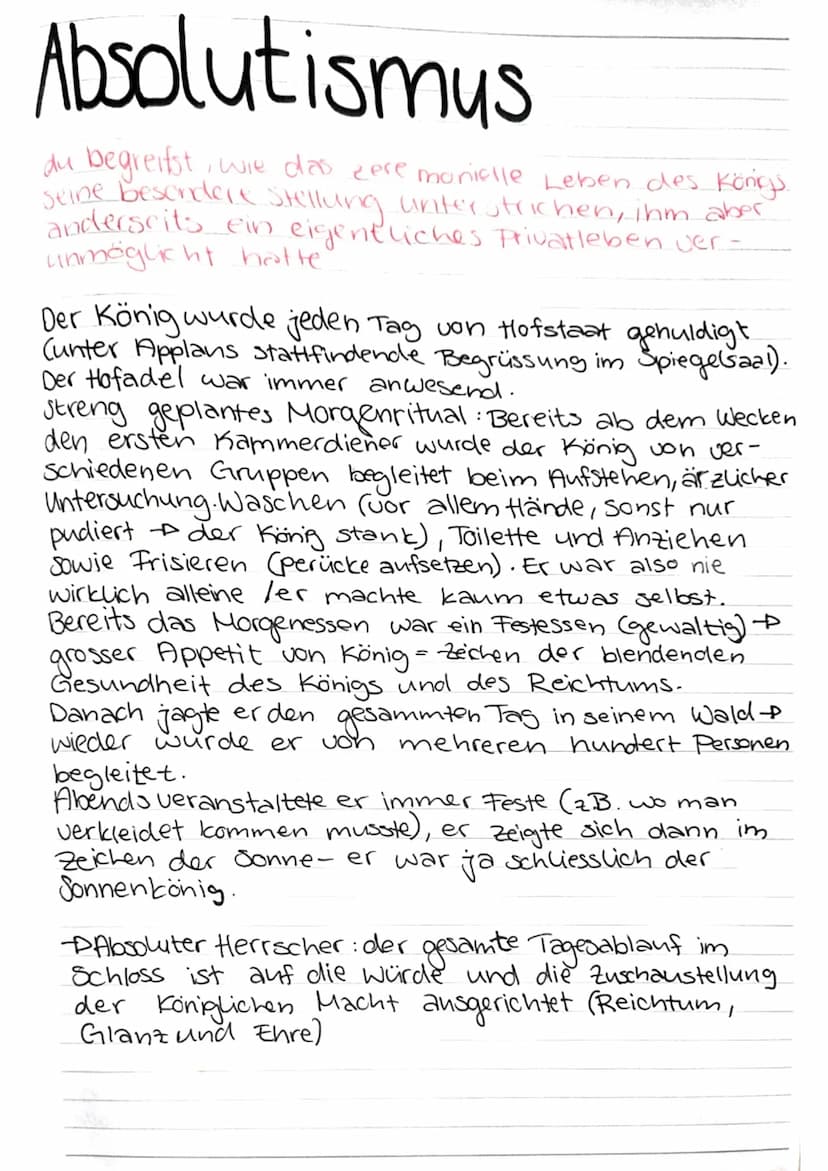 Absolutismus
du begreifst, wie das zeremonielle Leben des Königs
seine besondere Stellung unterstrichen, ihm aber
anderseits ein eigentliches Privatleben ver-
unmöglicht hatte
Der König wurde jeden Tag von Hofstaat gehuldigt
(unter Applaus stattfindende Begrüssung im Spiegelsaal).
Der Hofadel war immer anwesend.
Streng geplantes Morgenritual: Bereits ab dem Wecken
den ersten Kammerdiener wurde der König von ver-
schiedenen Gruppen begleitet beim Aufstehen, ärzlicher
Untersuchung. Waschen (vor allem Hände, sonst nur
pudiert → der König stank), Toilette und Anziehen
sowie Frisieren (perücke aufsetzen). Er war also nie
wirklich alleine / er machte kaum etwas selbst.
Bereits das Morgenessen war ein Festessen (gewaltig) →
grosser Appetit von König = Zeichen der blendenden
Gesundheit des Königs und des Reichtums.
Danach jagte er den gesammten Tag in seinem Wald →
wieder wurde er von mehreren hundert Personen
begleitet.
Abends veranstaltete er immer Feste (zB. wo man
verkleidet kommen musste), er zeigte sich dann im
Zeichen der Sonne - er war ja schliesslich der
Sonnenkönig.
→ Absoluter Herrscher: der gesamte Tagesablauf im
Schloss ist auf die Würde und die Zuschaustellung
der Königlichen Macht ausgerichtet (Reichtum,
Glanz und Ehre)